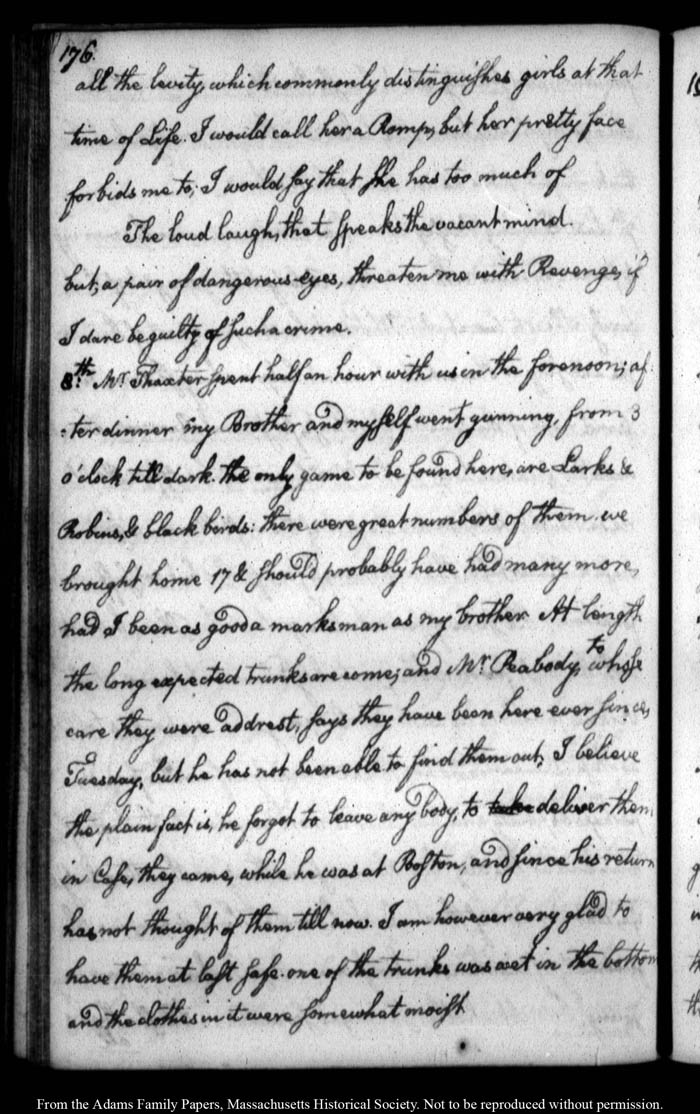 176.
all the levity, which commonly distinguishes girls at that
time of Life. I would call her a Romp, but her pretty face
forbids me to; I would say that she has too much of
The loud laugh, that speaks the vacant mind.
but, a pair of dangerous eyes, threaten me with Revenge, if
I dare be guilty of such a crime.
8th. Mr. Thaxter spent half an hour with us in the forenoon; af-
:ter dinner my Brother and myself went gunning, from 3
o'clock till dark. the only game to be found here, are Larks &
Robins, & black birds: there were great numbers of them. we
brought home 17 & should probably have had many more,
had I been as good a marksman as my brother. At length
the long expected trunks are come; and Mr. Peabody, to whose
care they were addrest, says they have been here ever since,
Tuesday, but he has not been able to find them out; I believe
the plain fact is, he forgot to leave any body, to take deliver them,
in Case, they came, while he was at Boston, and since his return
has not thought of them till now. I am however very glad to
have them at last safe. one of the trunks was wet in the bottom
and the clothes in it were somewhat moist
From the Adams Family Papers, Massachusetts Historical Society. Not to be reproduced without permission.